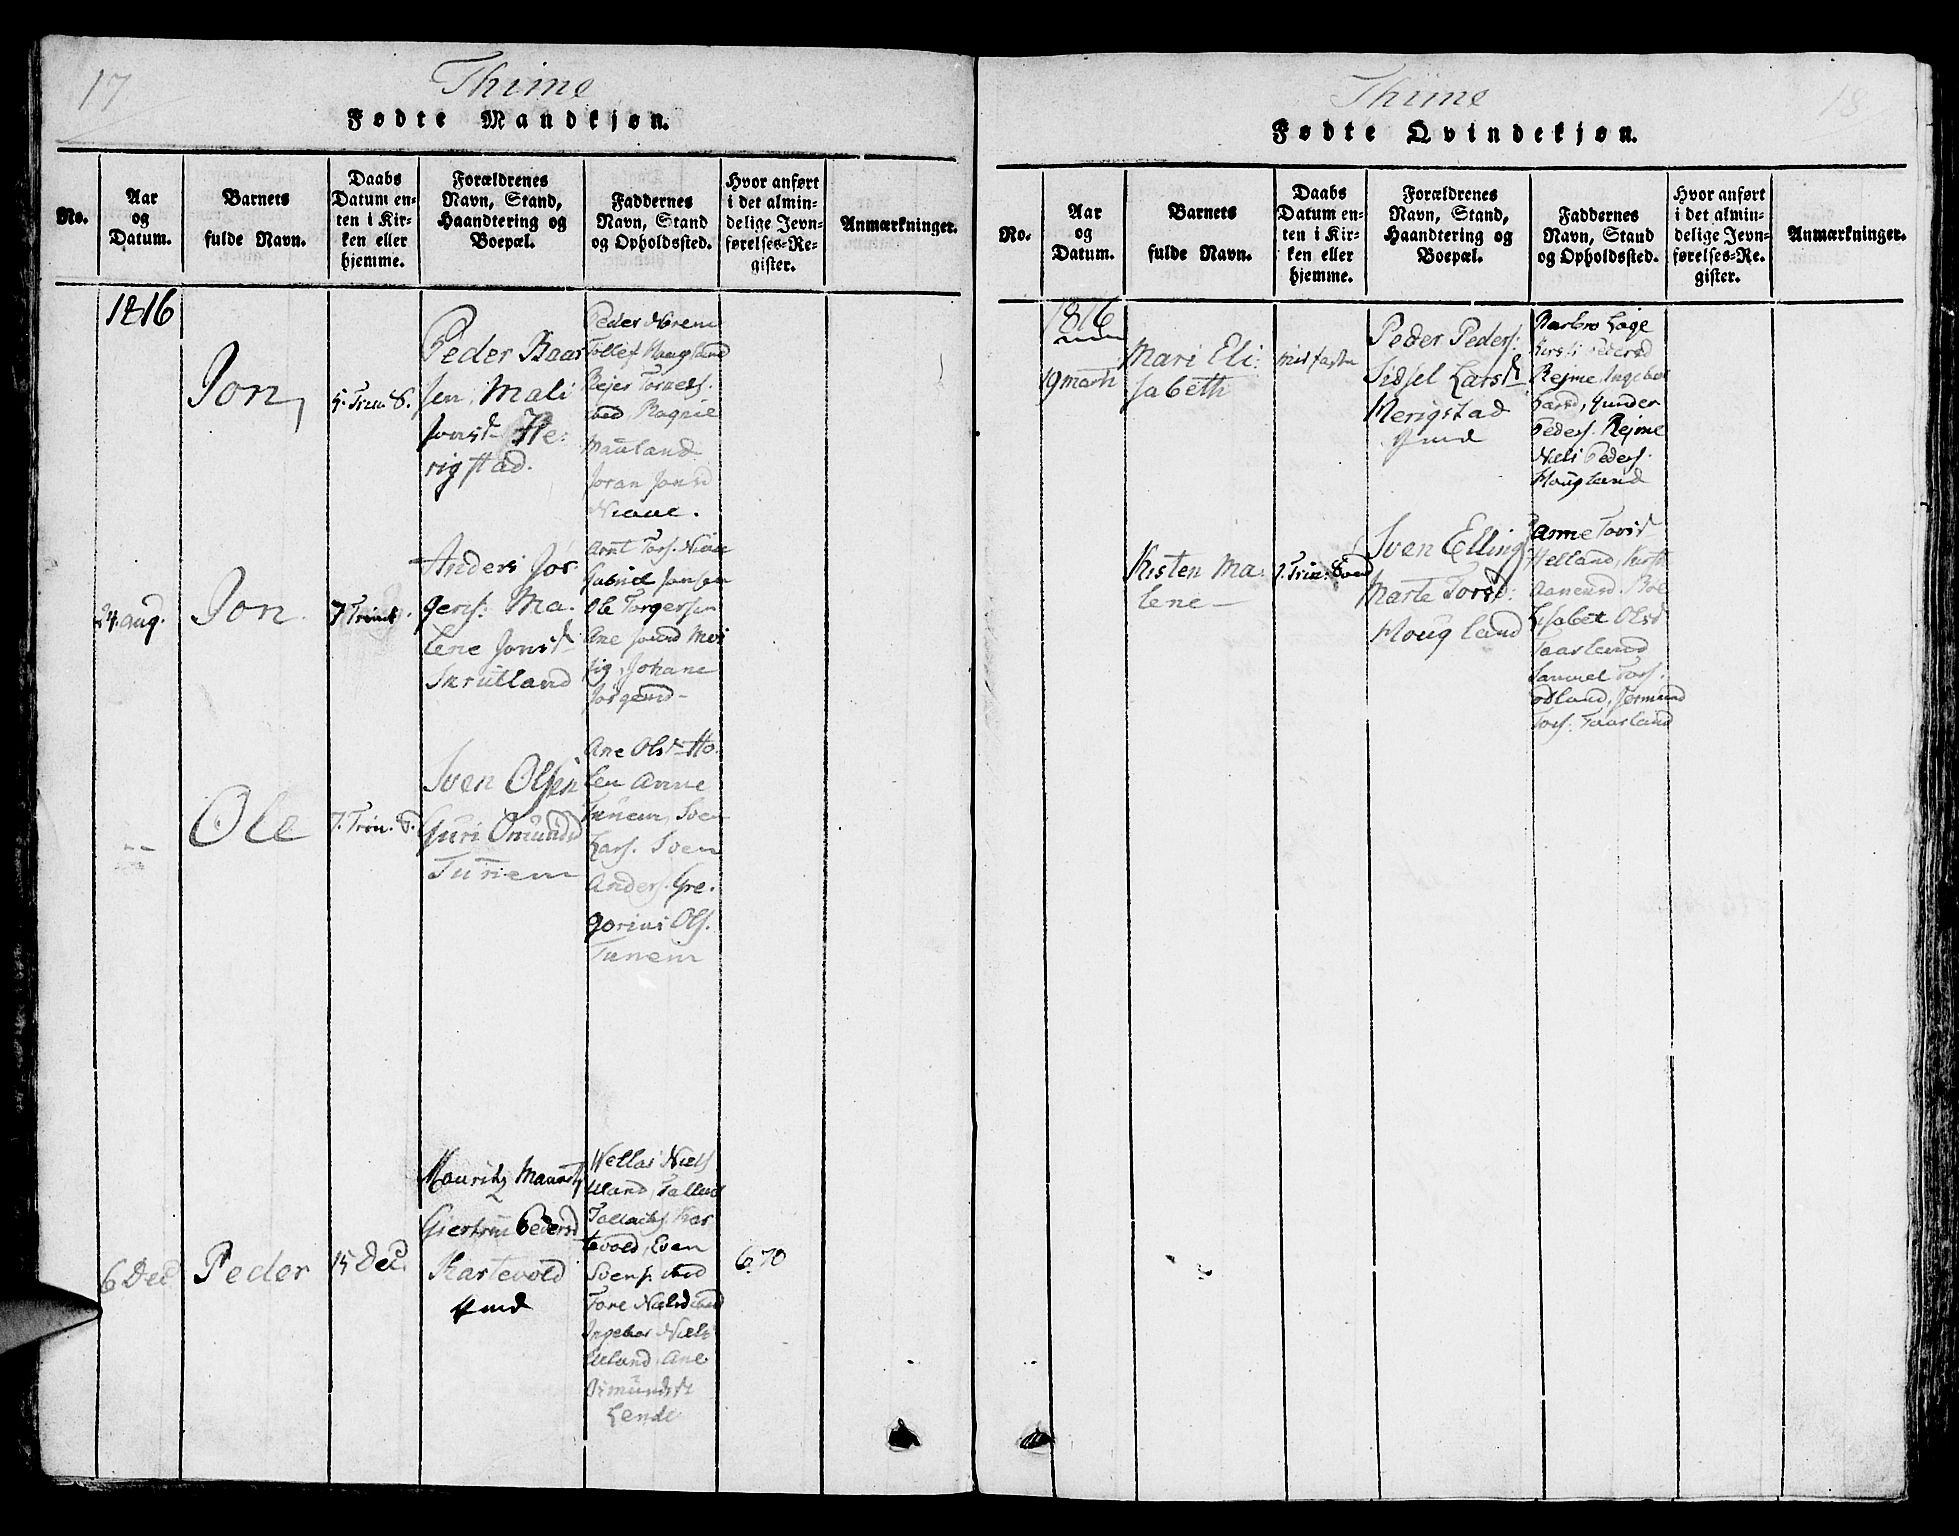 17
Thime
Fødte Mandkjøn.
No.
Aar
og
Datum.
Barnets
fulde Navn.
Daabs
Datum en-
ten i Kir-
ken eller
hjemme.
Forældrenes
Navn, Stand,
Haandtering og
Boepæl.
Faddernes
Navn, Stand
og Opholdssted.
Hvor anført
i det almin-
delige Jevn-
førelses-Re-
gister.
Anmærkninger.
1816
Jon,
5. Trin. S.
Peder Baar
sen, Mali
Jonsd He:
rigstad.
Peder
Tollef Haugland
Rejer
Ragnil
Mauland
Joran Jonsd
Niaae.
24. aug.
Jon.
7 Trinit.
Anders Jör
gens: Ma.
lene Jonsd
Skrutland
Arnt Tors. Niaae
Gabriel Jonsen
Ole Torgersen
Ane
Johane
Jörgensd
Ole
7. Trin. S.
Sven Olsen
Guri Omunds
Tunem
Ane Olsd Ho.
len Anne
Tunem, Sven
Lars. Sven
Anders. Gre.
gorius Ols.
Tunem
6 Dec
Peder
15 Dec.
Mauritz Mauritz
Giertru Pedersd
Kartevold
Niels
Uland, Tallach
Tallachs. Kar
tevold, Even
Svens.
Tore Nielsd
Ingebor Niels
Uland, Ane
Osmundsd
Lende
670
18
Thime
Fødte Qvindekjøn.
No.
Aar
og
Datum.
Barnets
fulde Navn.
Daabs
Datum en-
ten i Kir-
ken eller
hjemme.
Forældrenes
Navn, Stand,
Haandtering og
Boepæl.
Faddernes
Navn, Stand
og Opholdssted.
Hvor anført
i det almin-
delige Jevn-
førelses-Re-
gister.
Anmærkninger.
1816
19 marti
Mari Eli:
sabeth
midfaste
Peder Peders:
Sidsel Larsd
Herigstad
Barbro Löge
Kirsti Pedersd
Rejme, Ingebor
Larsd, Gunder
Peders. Rejme
Niels Peders.
Hougland
Kisten Ma.
lene
Sven Elling
Marte Torsd:
Hougland
Anne Torsd
Helland,
Lisabet Olsd
Taarland
Samuel Tors.
Odland, Jermund
Tors. Taarland